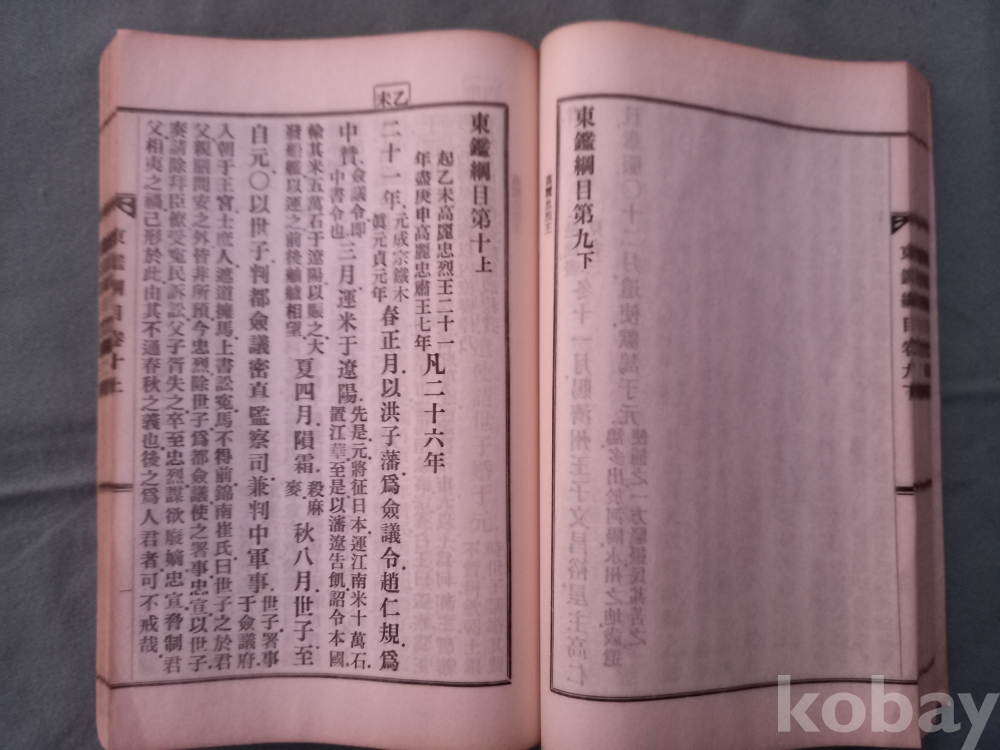 東鑑綱目第九下
東鑑綱目卷九下
乙未
東鑑綱目第十上
起乙未高麗忠烈王二十一
年盡庚申高麗忠肅王七年
凡二十六年
二十一年元成宗鐵木眞元貞元年春正月以洪子藩爲僉議令趙仁規爲
中贊僉議令卽中書令也三月運米于遼陽先是元將征日本運江南米十萬石置江華至是以瀋遼告飢詔令本國
輸其米五萬石于遼陽以賑之大發船艦以運之前後艫艫相望夏四月隕霜殺麻麥秋八月世子至
自元○以世子判都僉議密直監察司兼判中軍事世子署事于僉議府
入朝于王宮士庶人遮道擁馬上書訟寃馬不得前錦南崔氏曰世子之於君
父視膳問安之外皆非所預今忠烈除世子爲都僉議使之署事忠宣以世子
奏請除拜臣僚受寃民訴訟父子胥失之卒至忠烈謀欲廢嫡忠宣脅制君
父相夷之禍已形於此由其不通春秋之義也後之爲人君者可不戒哉
東鑑綱目卷十上
一
kobay